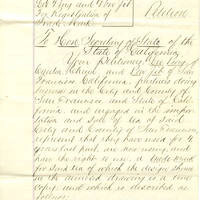 and Woo Jit
For Registration of
Trade Mark
Petition
To Hon. Secretary of State of the
State of California
Your Petitioner
and
San
Francisco California, partners doing
business in the City and County of
San Francisco and State of Cali-
fornia and engaged in the impor-
tation and sale of tea of said
City and County of San Francisco
represent that they have used for
years last past, are now using, and
have the right to use, a trade mark
for said tea of which the design shown
in the annexed drawing is a true
copy, and which is described as
follows